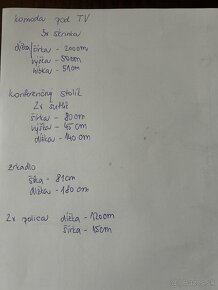 komoda pod TV
3x skrinka
dĺžka/šírka - 200cm
výška - 50cm
hĺbka - 51cm
konferenčný stolík
2x šuflík
šírka - 80cm
výška - 45cm
dĺžka - 140cm
zrkadlo
šíka - 81cm
dĺžka - 180cm
2x polica dĺžka - 120cm
šírka - 15cm